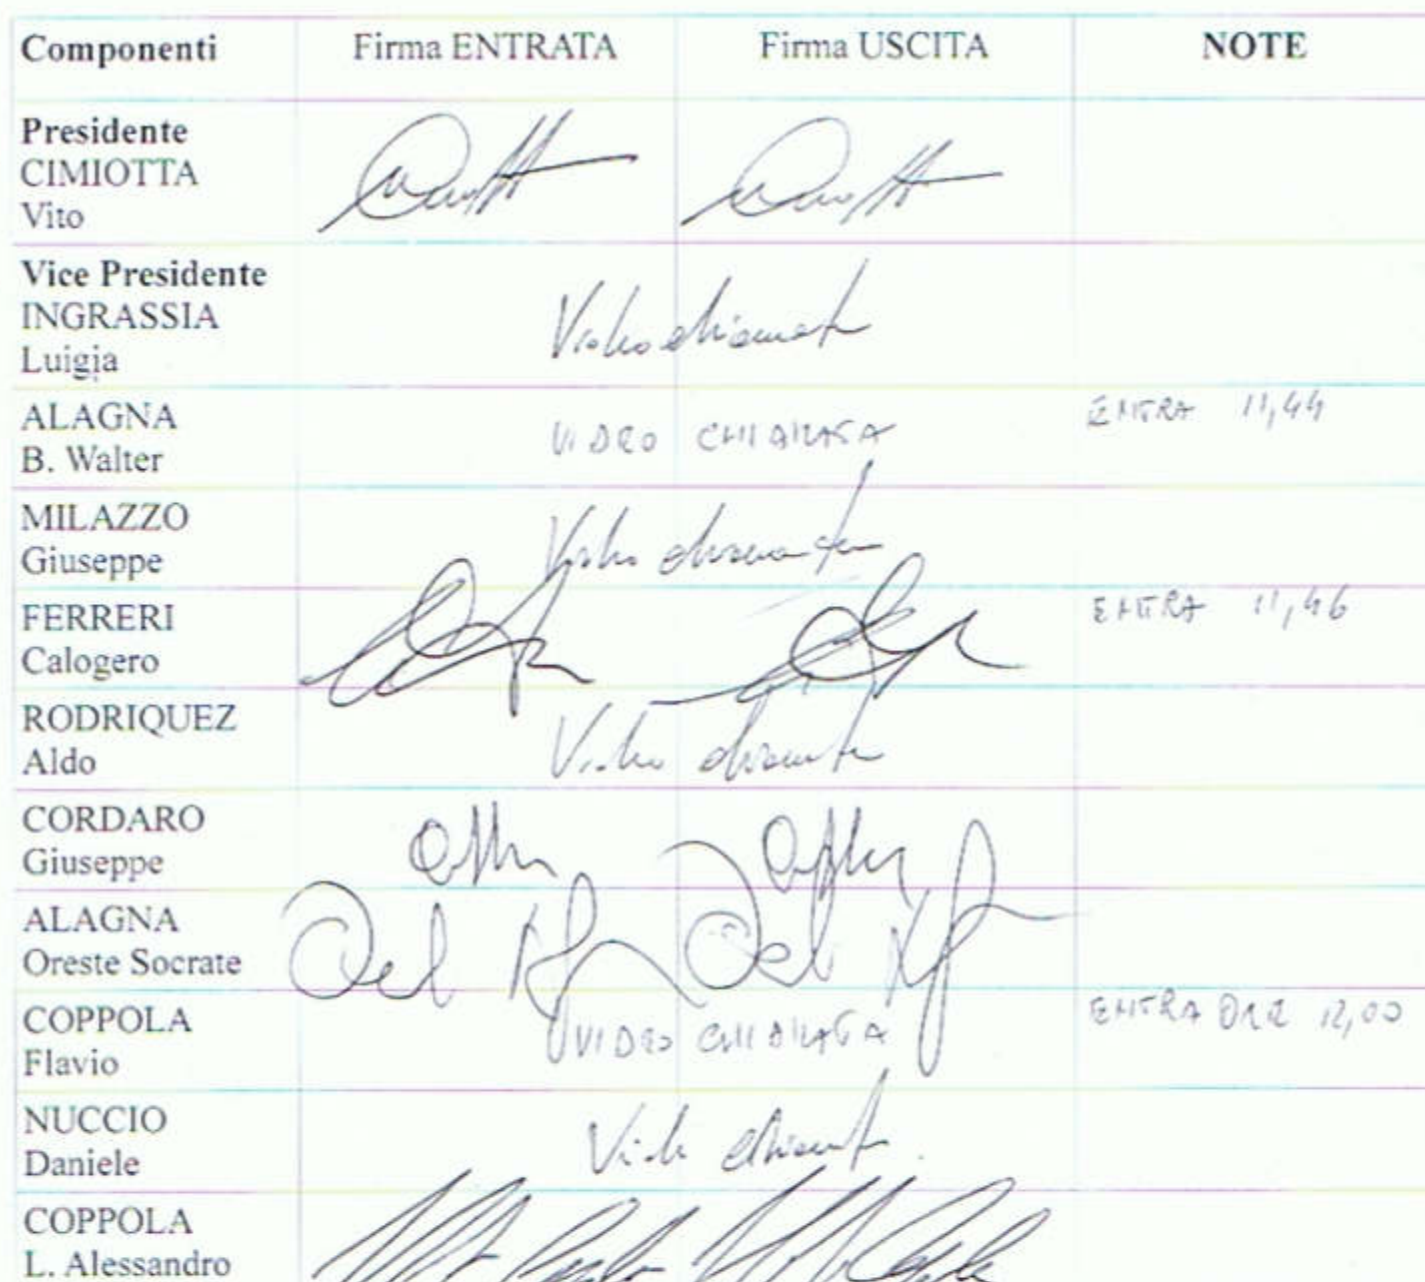 Componenti Firma ENTRATA Firma USCITA NOTE
Presidente
CIMIOTTA
Vito
Vice Presidente
INGRASSIA
Luigia
Videochiamata
ALAGNA
B. Walter
VIDEO CHIAMATA
ENTRA 11,44
MILAZZO
Giuseppe
Video chiamata
FERRERI
Calogero
ENTRA 11,46
RODRIQUEZ
Aldo
Video chiamata
CORDARO
Giuseppe
ALAGNA
Oreste Socrate
COPPOLA
Flavio
VIDEO CHIAMATA
ENTRA ORE 12,00
NUCCIO
Daniele
Video chiamata
COPPOLA
L. Alessandro